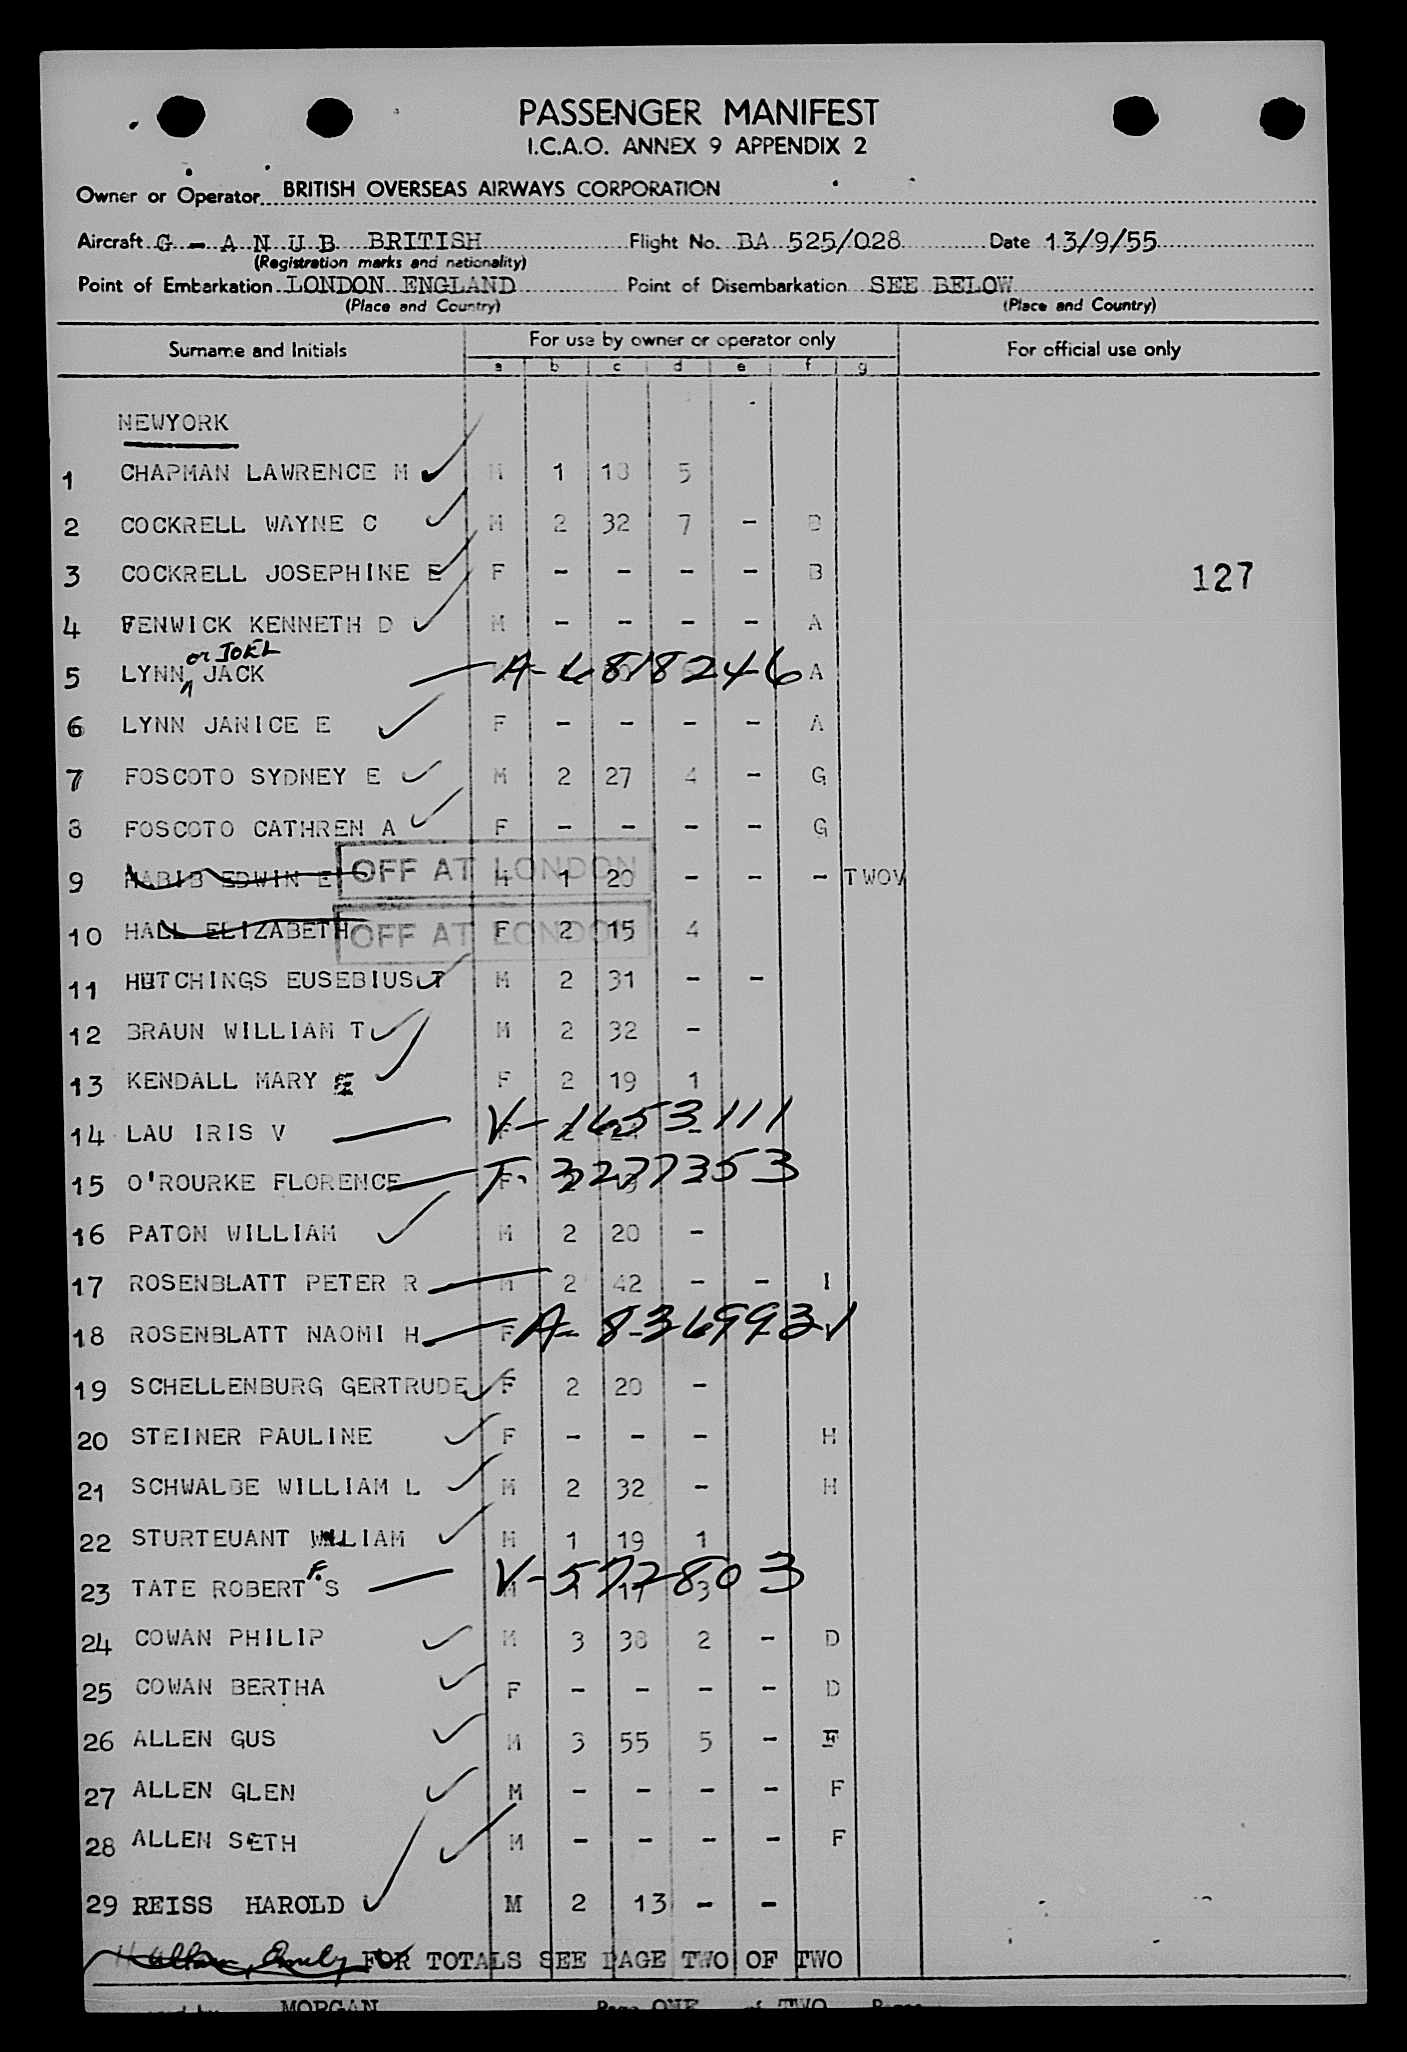 PASSENGER MANIFEST
I.C.A.O. ANNEX 9 APPENDIX 2
Owner or Operator BRITISH OVERSEAS AIRWAYS CORPORATION
Aircraft G - A N U B BRITISH Flight No. BA 525/028 Date 13/9/55
(Registration marks and nationality)
Point of Embarkation LONDON ENGLAND Point of Disembarkation SEE BELOW
(Place and Country) (Place and Country)
Surname and Initials For use by owner or operator only For official use only
a b c d e f g
NEWYORK
1 CHAPMAN LAWRENCE M M 1 18 5
2 COCKRELL WAYNE C M 2 32 7 - B
3 COCKRELL JOSEPHINE E F - - - - B
127
4 FENWICK KENNETH D M - - - - A
or JOEL
5 LYNN JACK A-6818246 A
6 LYNN JANICE E F - - - - A
7 FOSCOTO SYDNEY E M 2 27 4 - G
8 FOSCOTO CATHREN A F - - - - G
9 HABIB EDWIN E OFF AT LONDON M 1 20 - - - TWOV
10 HALL ELIZABETH OFF AT LONDON F 2 15 4
11 HUTCHINGS EUSEBIUS T M 2 31 - -
12 BRAUN WILLIAM T M 2 32 -
13 KENDALL MARY F 2 19 1
14 LAU IRIS V V-1653111
15 O'ROURKE FLORENCE T-3277353
16 PATON WILLIAM M 2 20 -
17 ROSENBLATT PETER R M 2 42 - - I
18 ROSENBLATT NAOMI H F A-836993
19 SCHELLENBURG GERTRUDE F 2 20 -
20 STEINER PAULINE F - - - H
21 SCHWALBE WILLIAM L M 2 32 - H
22 STURTEUANT WILLIAM M 1 19 1
23 TATE ROBERT F. S M V-572803
24 COWAN PHILIP M 3 38 2 - D
25 COWAN BERTHA F - - - - D
26 ALLEN GUS M 3 55 5 - F
27 ALLEN GLEN M - - - - F
28 ALLEN SETH M - - - - F
29 REISS HAROLD M 2 13 - -
Emily FOR TOTALS SEE PAGE TWO OF TWO
MORGAN Page ONE of TWO Pages